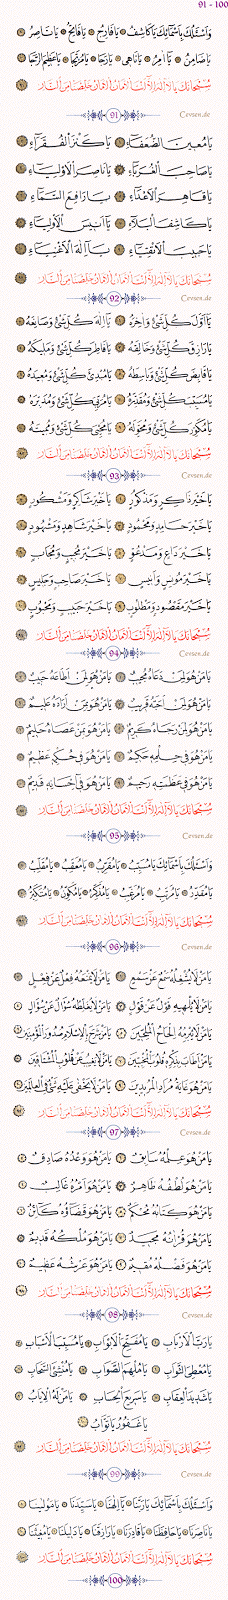 91 - 100
وَأَسْئَلُكَ بِأَسْمَائِكَ يَا كَاشِفُ يَا فَارِجُ يَا فَاتِحُ يَا نَاصِرُ
يَا ضَامِنُ يَا اٰمِرُ يَا نَاهِى يَا رَجَا يَا مُرْتَجَا يَا عَظِيمَ الرَّجَا
سُبْحَانَكَ يَا لَا اِلٰهَ اِلَّا اَنْتَ الْاَمَانُ الْاَمَانُ خَلِّصْنَا مِنَ النَّارِ
91 Cevsen.de
يَا مُعِينَ الضُّعَفَاءِ يَا كَنْزَ الْفُقَرَاءِ
يَا صَاحِبَ الْغُرَبَاءِ يَا نَاصِرَ الْاَوْلِيَاءِ
يَا قَاهِرَ الْاَعْدَاءِ يَا رَافِعَ السَّمَاءِ
يَا كَاشِفَ الْبَلَاءِ يَا اَنِيسَ الْاَوْلِيَاءِ
يَا حَبِيبَ الْاَتْقِيَاءِ يَا اِلٰهَ الْاَغْنِيَاءِ
سُبْحَانَكَ يَا لَا اِلٰهَ اِلَّا اَنْتَ الْاَمَانُ الْاَمَانُ خَلِّصْنَا مِنَ النَّارِ
92 Cevsen.de
يَا اَوَّلَ كُلِّ شَيْءٍ وَاٰخِرَهُ يَا اِلٰهَ كُلِّ شَيْءٍ وَصَانِعَهُ
يَا رَازِقَ كُلِّ شَيْءٍ وَخَالِقَهُ يَا فَاطِرَ كُلِّ شَيْءٍ وَمَلِيكَهُ
يَا قَابِضَ كُلِّ شَيْءٍ وَبَاسِطَهُ يَا مُبْدِئَ كُلِّ شَيْءٍ وَمُعِيدَهُ
يَا مُسَبِّبَ كُلِّ شَيْءٍ وَمُقَدِّرَهُ يَا مُرَبِّىَ كُلِّ شَيْءٍ وَمُدَبِّرَهُ
يَا مُكَوِّرَ كُلِّ شَيْءٍ وَمُحَوِّلَهُ يَا مُحْيِىَ كُلِّ شَيْءٍ وَمُمِيتَهُ
سُبْحَانَكَ يَا لَا اِلٰهَ اِلَّا اَنْتَ الْاَمَانُ الْاَمَانُ خَلِّصْنَا مِنَ النَّارِ
93 Cevsen.de
يَا خَيْرَ ذَاكِرٍ وَمَذْكُورٍ يَا خَيْرَ شَاكِرٍ وَمَشْكُورٍ
يَا خَيْرَ حَامِدٍ وَمَحْمُودٍ يَا خَيْرَ شَاهِدٍ وَمَشْهُودٍ
يَا خَيْرَ دَاعٍ وَمَدْعُوٍّ يَا خَيْرَ مُجِيبٍ وَمُجَابٍ
يَا خَيْرَ مُونِسٍ وَاَنِيسٍ يَا خَيْرَ صَاحِبٍ وَجَلِيسٍ
يَا خَيْرَ مَقْصُودٍ وَمَطْلُوبٍ يَا خَيْرَ حَبِيبٍ وَمَحْبُوبٍ
سُبْحَانَكَ يَا لَا اِلٰهَ اِلَّا اَنْتَ الْاَمَانُ الْاَمَانُ خَلِّصْنَا مِنَ النَّارِ
94 Cevsen.de
يَا مَنْ هُوَ لِمَنْ دَعَاهُ مُجِيبٌ يَا مَنْ هُوَ لِمَنْ اَطَاعَهُ حَبِيبٌ
يَا مَنْ هُوَ لِمَنْ اَحَبَّهُ قَرِيبٌ يَا مَنْ هُوَ بِمَنْ اَرَادَهُ عَلِيمٌ
يَا مَنْ هُوَ لِمَنْ رَجَاهُ كَرِيمٌ يَا مَنْ هُوَ بِمَنْ عَصَاهُ حَلِيمٌ
يَا مَنْ هُوَ فِى حِلْمِهِ حَكِيمٌ يَا مَنْ هُوَ فِى حُكْمِهِ عَظِيمٌ
يَا مَنْ هُوَ فِى عَظَمَتِهِ رَحِيمٌ يَا مَنْ هُوَ فِى اِحْسَانِهِ قَدِيمٌ
سُبْحَانَكَ يَا لَا اِلٰهَ اِلَّا اَنْتَ الْاَمَانُ الْاَمَانُ خَلِّصْنَا مِنَ النَّارِ
95 Cevsen.de
وَأَسْئَلُكَ بِأَسْمَائِكَ يَا مُسَبِّبُ يَا مُقَرِّبُ يَا مُعَقِّبُ يَا مُقَلِّبُ
يَا مُقَدِّرُ يَا مُرَتِّبُ يَا مُرَغِّبُ يَا مُذَكِّرُ يَا مُكَوِّنُ يَا مُتَكَبِّرُ
سُبْحَانَكَ يَا لَا اِلٰهَ اِلَّا اَنْتَ الْاَمَانُ الْاَمَانُ خَلِّصْنَا مِنَ النَّارِ
96 Cevsen.de
يَا مَنْ لَا يَشْغَلُهُ سَمْعٌ عَنْ سَمْعٍ يَا مَنْ لَا يَمْنَعُهُ فِعْلٌ عَنْ فِعْلٍ
يَا مَنْ لَا يُلْهِيهِ قَوْلٌ عَنْ قَوْلٍ يَا مَنْ لَا يُغَلِّطُهُ سُؤَالٌ عَنْ سُؤَالٍ
يَا مَنْ لَا يُبْرِمُهُ اِلْحَاحُ الْمُلِحِّينَ يَا مَنْ شَرَحَ بِالْاِسْلَامِ صُدُورَ الْمُؤْمِنِينَ
يَا مَنْ اَطَابَ بِذِكْرِهِ قُلُوبَ الْمُخْبِتِينَ يَا مَنْ لَا يَغِيبُ عَنْ قُلُوبِ الْمُشْتَاقِينَ
يَا مَنْ هُوَ غَايَةُ مُرَادِ الْمُرِيدِينَ يَا مَنْ لَا يَخْفٰى عَلَيْهِ شَيْءٌ فِى الْعَالَمِينَ
سُبْحَانَكَ يَا لَا اِلٰهَ اِلَّا اَنْتَ الْاَمَانُ الْاَمَانُ خَلِّصْنَا مِنَ النَّارِ
97 Cevsen.de
يَا مَنْ هُوَ عِلْمُهُ سَابِقٌ يَا مَنْ هُوَ وَعْدُهُ صَادِقٌ
يَا مَنْ هُوَ لُطْفُهُ ظَاهِرٌ يَا مَنْ هُوَ اَمْرُهُ غَالِبٌ
يَا مَنْ هُوَ كِتَابُهُ مُحْكَمٌ يَا مَنْ هُوَ قَضَاؤُهُ كَائِنٌ
يَا مَنْ هُوَ قُرْاٰنُهُ مَجِيدٌ يَا مَنْ هُوَ مُلْكُهُ قَدِيمٌ
يَا مَنْ هُوَ فَضْلُهُ مُقِيمٌ يَا مَنْ هُوَ عَرْشُهُ عَظِيمٌ
سُبْحَانَكَ يَا لَا اِلٰهَ اِلَّا اَنْتَ الْاَمَانُ الْاَمَانُ خَلِّصْنَا مِنَ النَّارِ
98 Cevsen.de
يَا رَبَّ الْاَرْبَابِ يَا مُفَتِّحَ الْاَبْوَابِ يَا مُسَبِّبَ الْاَسْبَابِ
يَا مُعْطِىَ الثَّوَابِ يَا مُلْهِمَ الصَّوَابِ يَا مُنْشِئَ السَّحَابِ
يَا شَدِيدَ الْعِقَابِ يَا سَرِيعَ الْحِسَابِ يَا مَنْ لَهُ الْاِيَابُ
يَا غَفُورُ يَا تَوَّابُ
سُبْحَانَكَ يَا لَا اِلٰهَ اِلَّا اَنْتَ الْاَمَانُ الْاَمَانُ خَلِّصْنَا مِنَ النَّارِ
99 Cevsen.de
وَأَسْئَلُكَ بِأَسْمَائِكَ يَا رَبَّنَا يَا اِلٰهَنَا يَا سَيِّدَنَا يَا مَوْلٰينَا
يَا نَاصِرَنَا يَا حَافِظَنَا يَا قَادِرَنَا يَا رَازِقَنَا يَا دَلِيلَنَا يَا مُغِيثَنَا
سُبْحَانَكَ يَا لَا اِلٰهَ اِلَّا اَنْتَ الْاَمَانُ الْاَمَانُ خَلِّصْنَا مِنَ النَّارِ
100